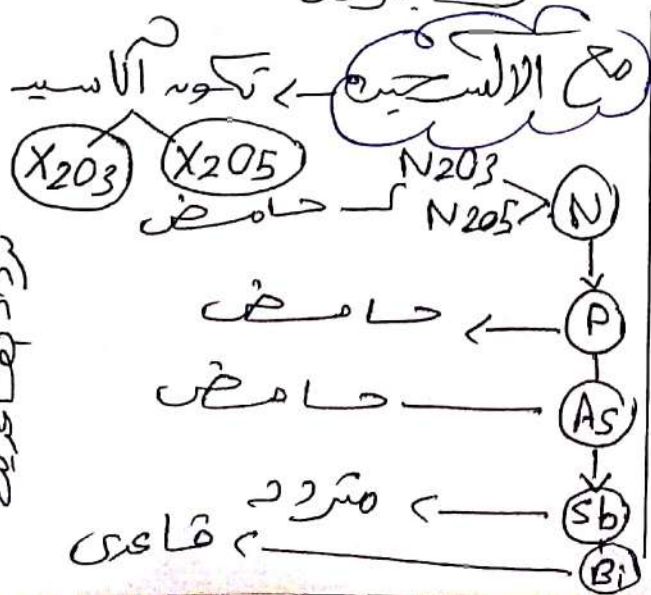 مع الأكسجين → تكون أكاسيد
X2O5 X2O3
N → N2O3
N2O5 حامض
P → حامض
As حامض
Sb → متردد
Bi → قاعدي